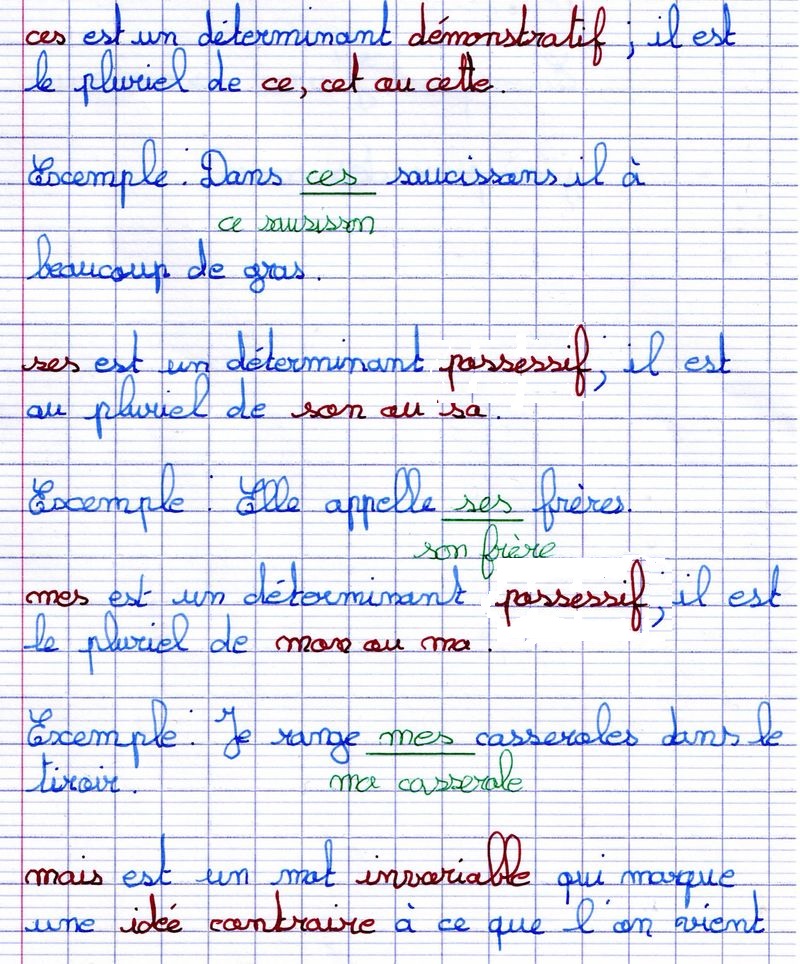 ces est un déterminant démonstratif ; il est
le pluriel de ce, cet ou cette.
Exemple : Dans ces saucissons il à
ce sausisson
beaucoup de gras.
ses est un déterminant possessif ; il est
au pluriel de son ou sa.
Exemple : Elle appelle ses frères.
son frère
mes est un déterminant possessif ; il est
le pluriel de mon ou ma.
Exemple : Je range mes casseroles dans le
ma casserole
tiroir.
mais est un mot invariable qui marque
une idée contraire à ce que l'on vient